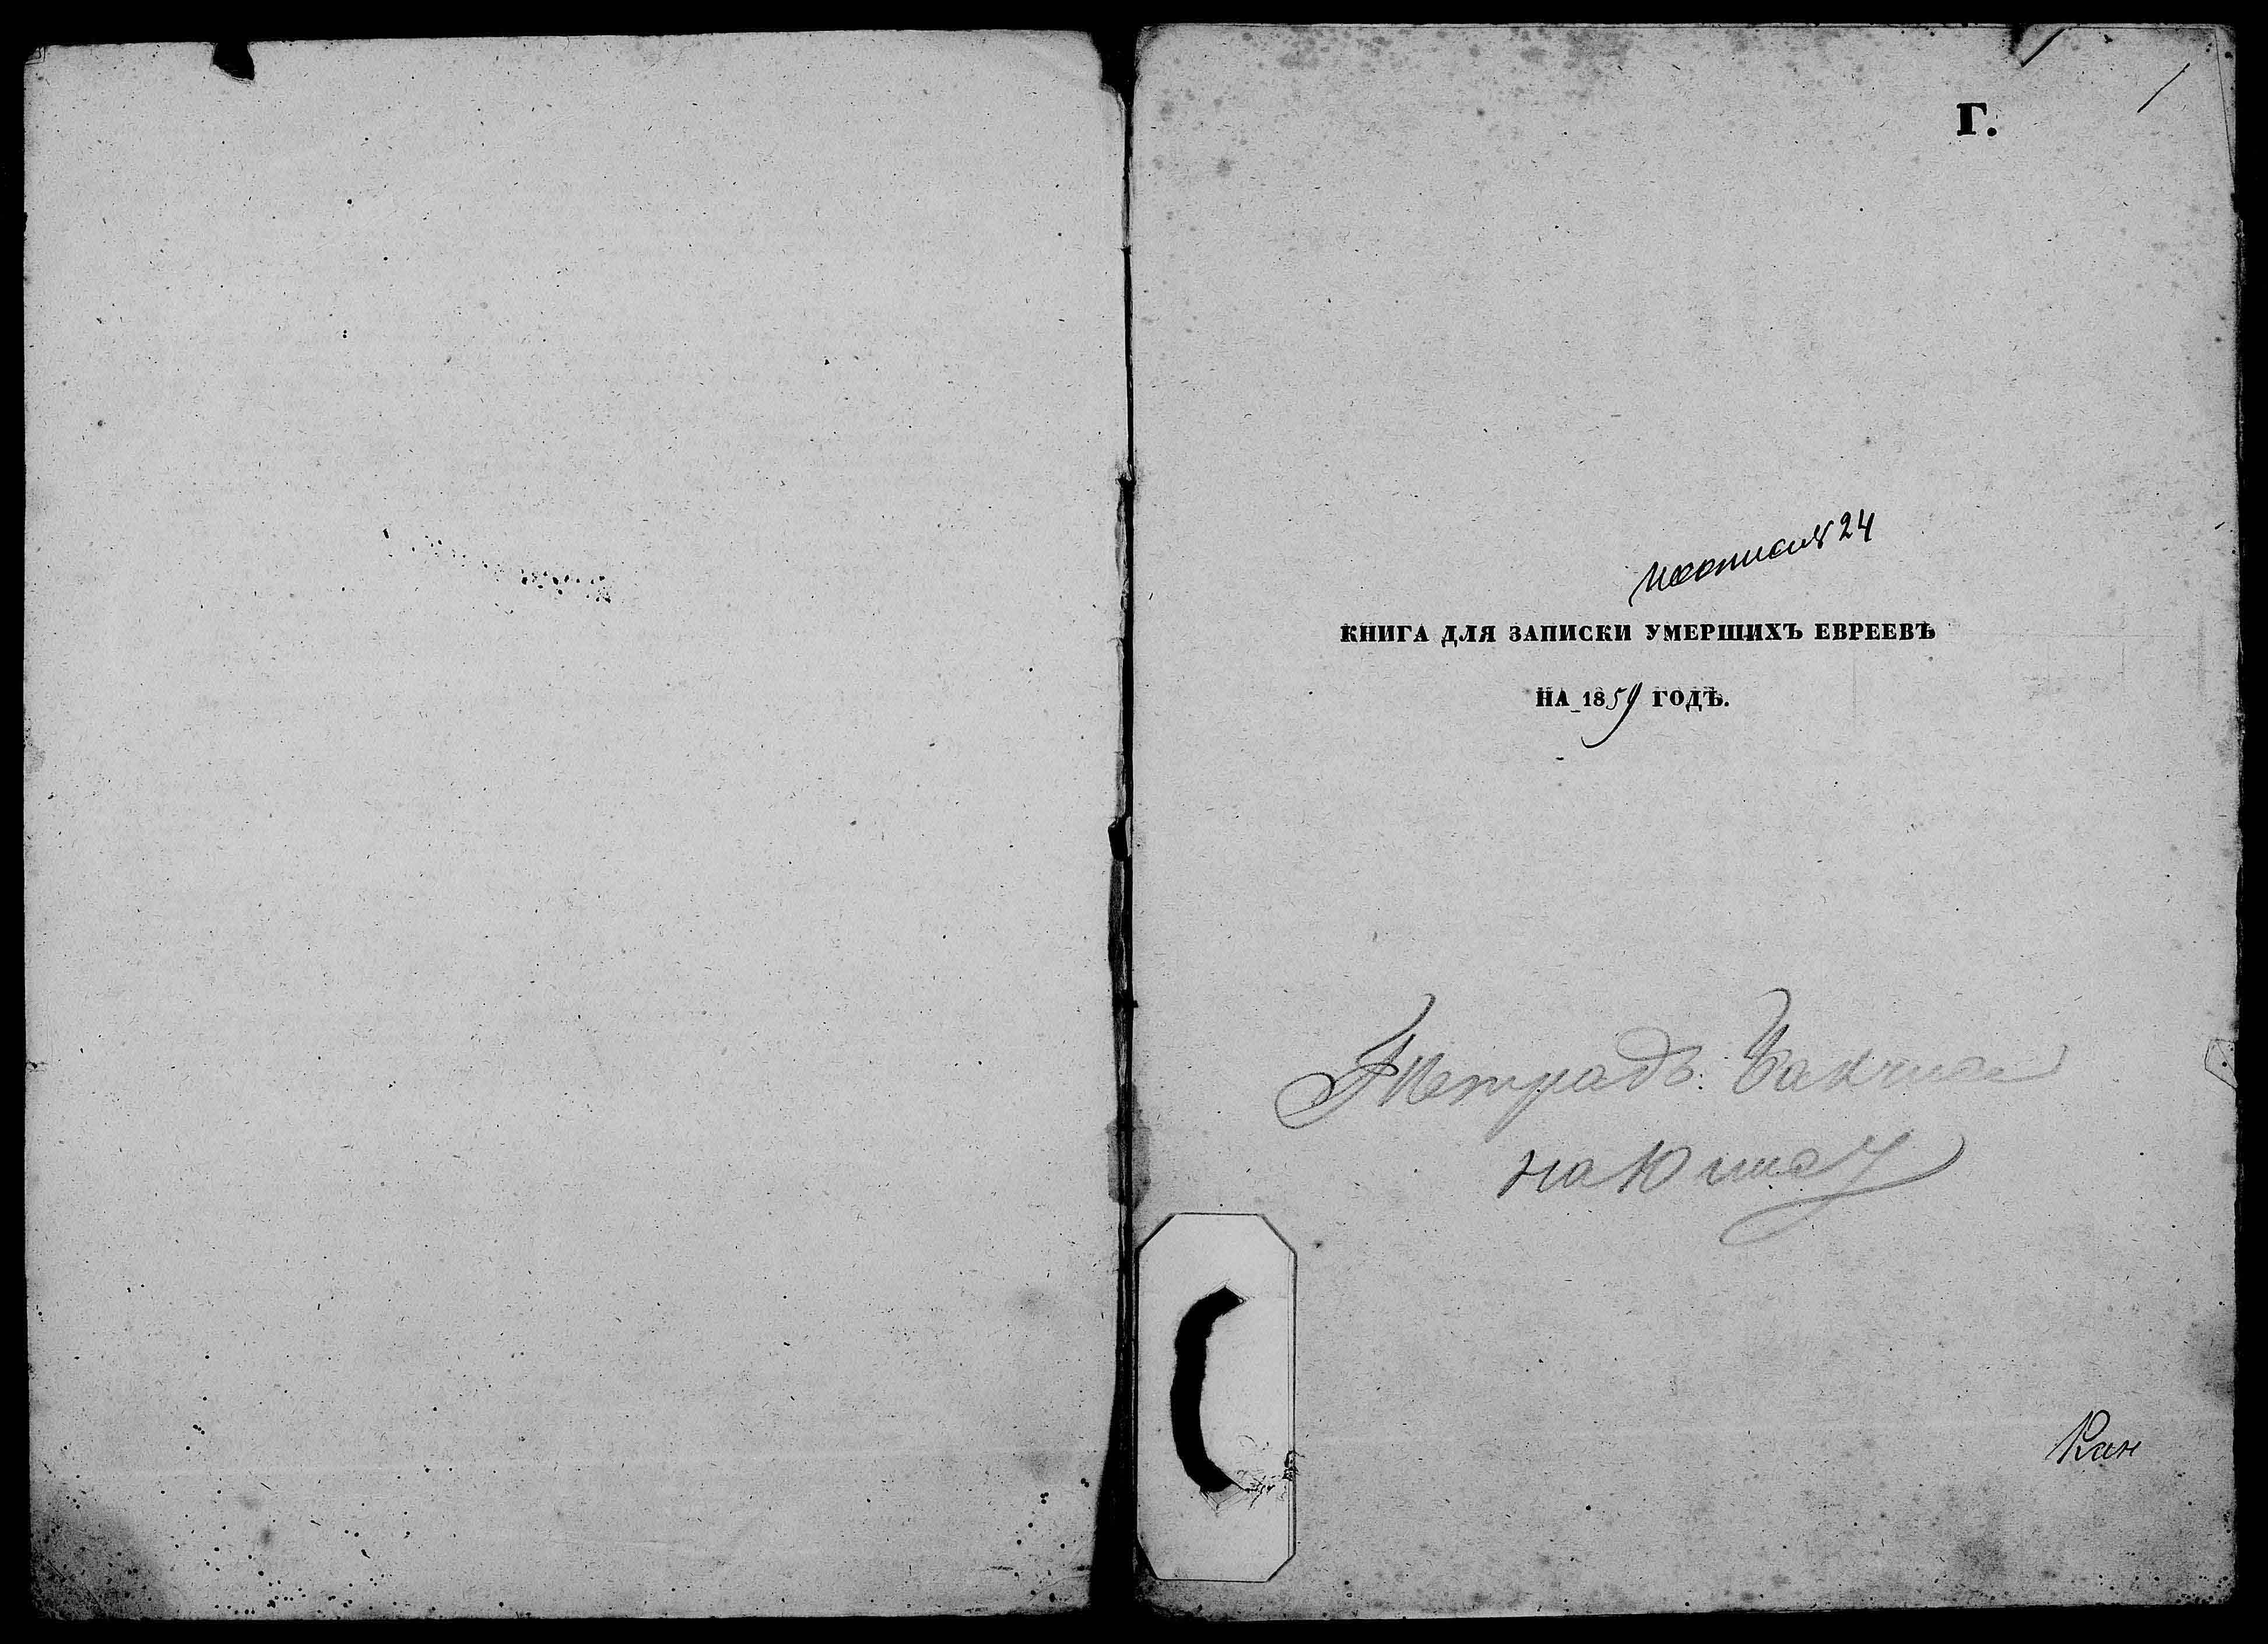 Г.
По описи № 24
КНИГА ДЛЯ ЗАПИСКИ УМЕРШИХЪ ЕВРЕЕВЪ
НА 1859 ГОДЪ.
Тетрадь
на
Кан